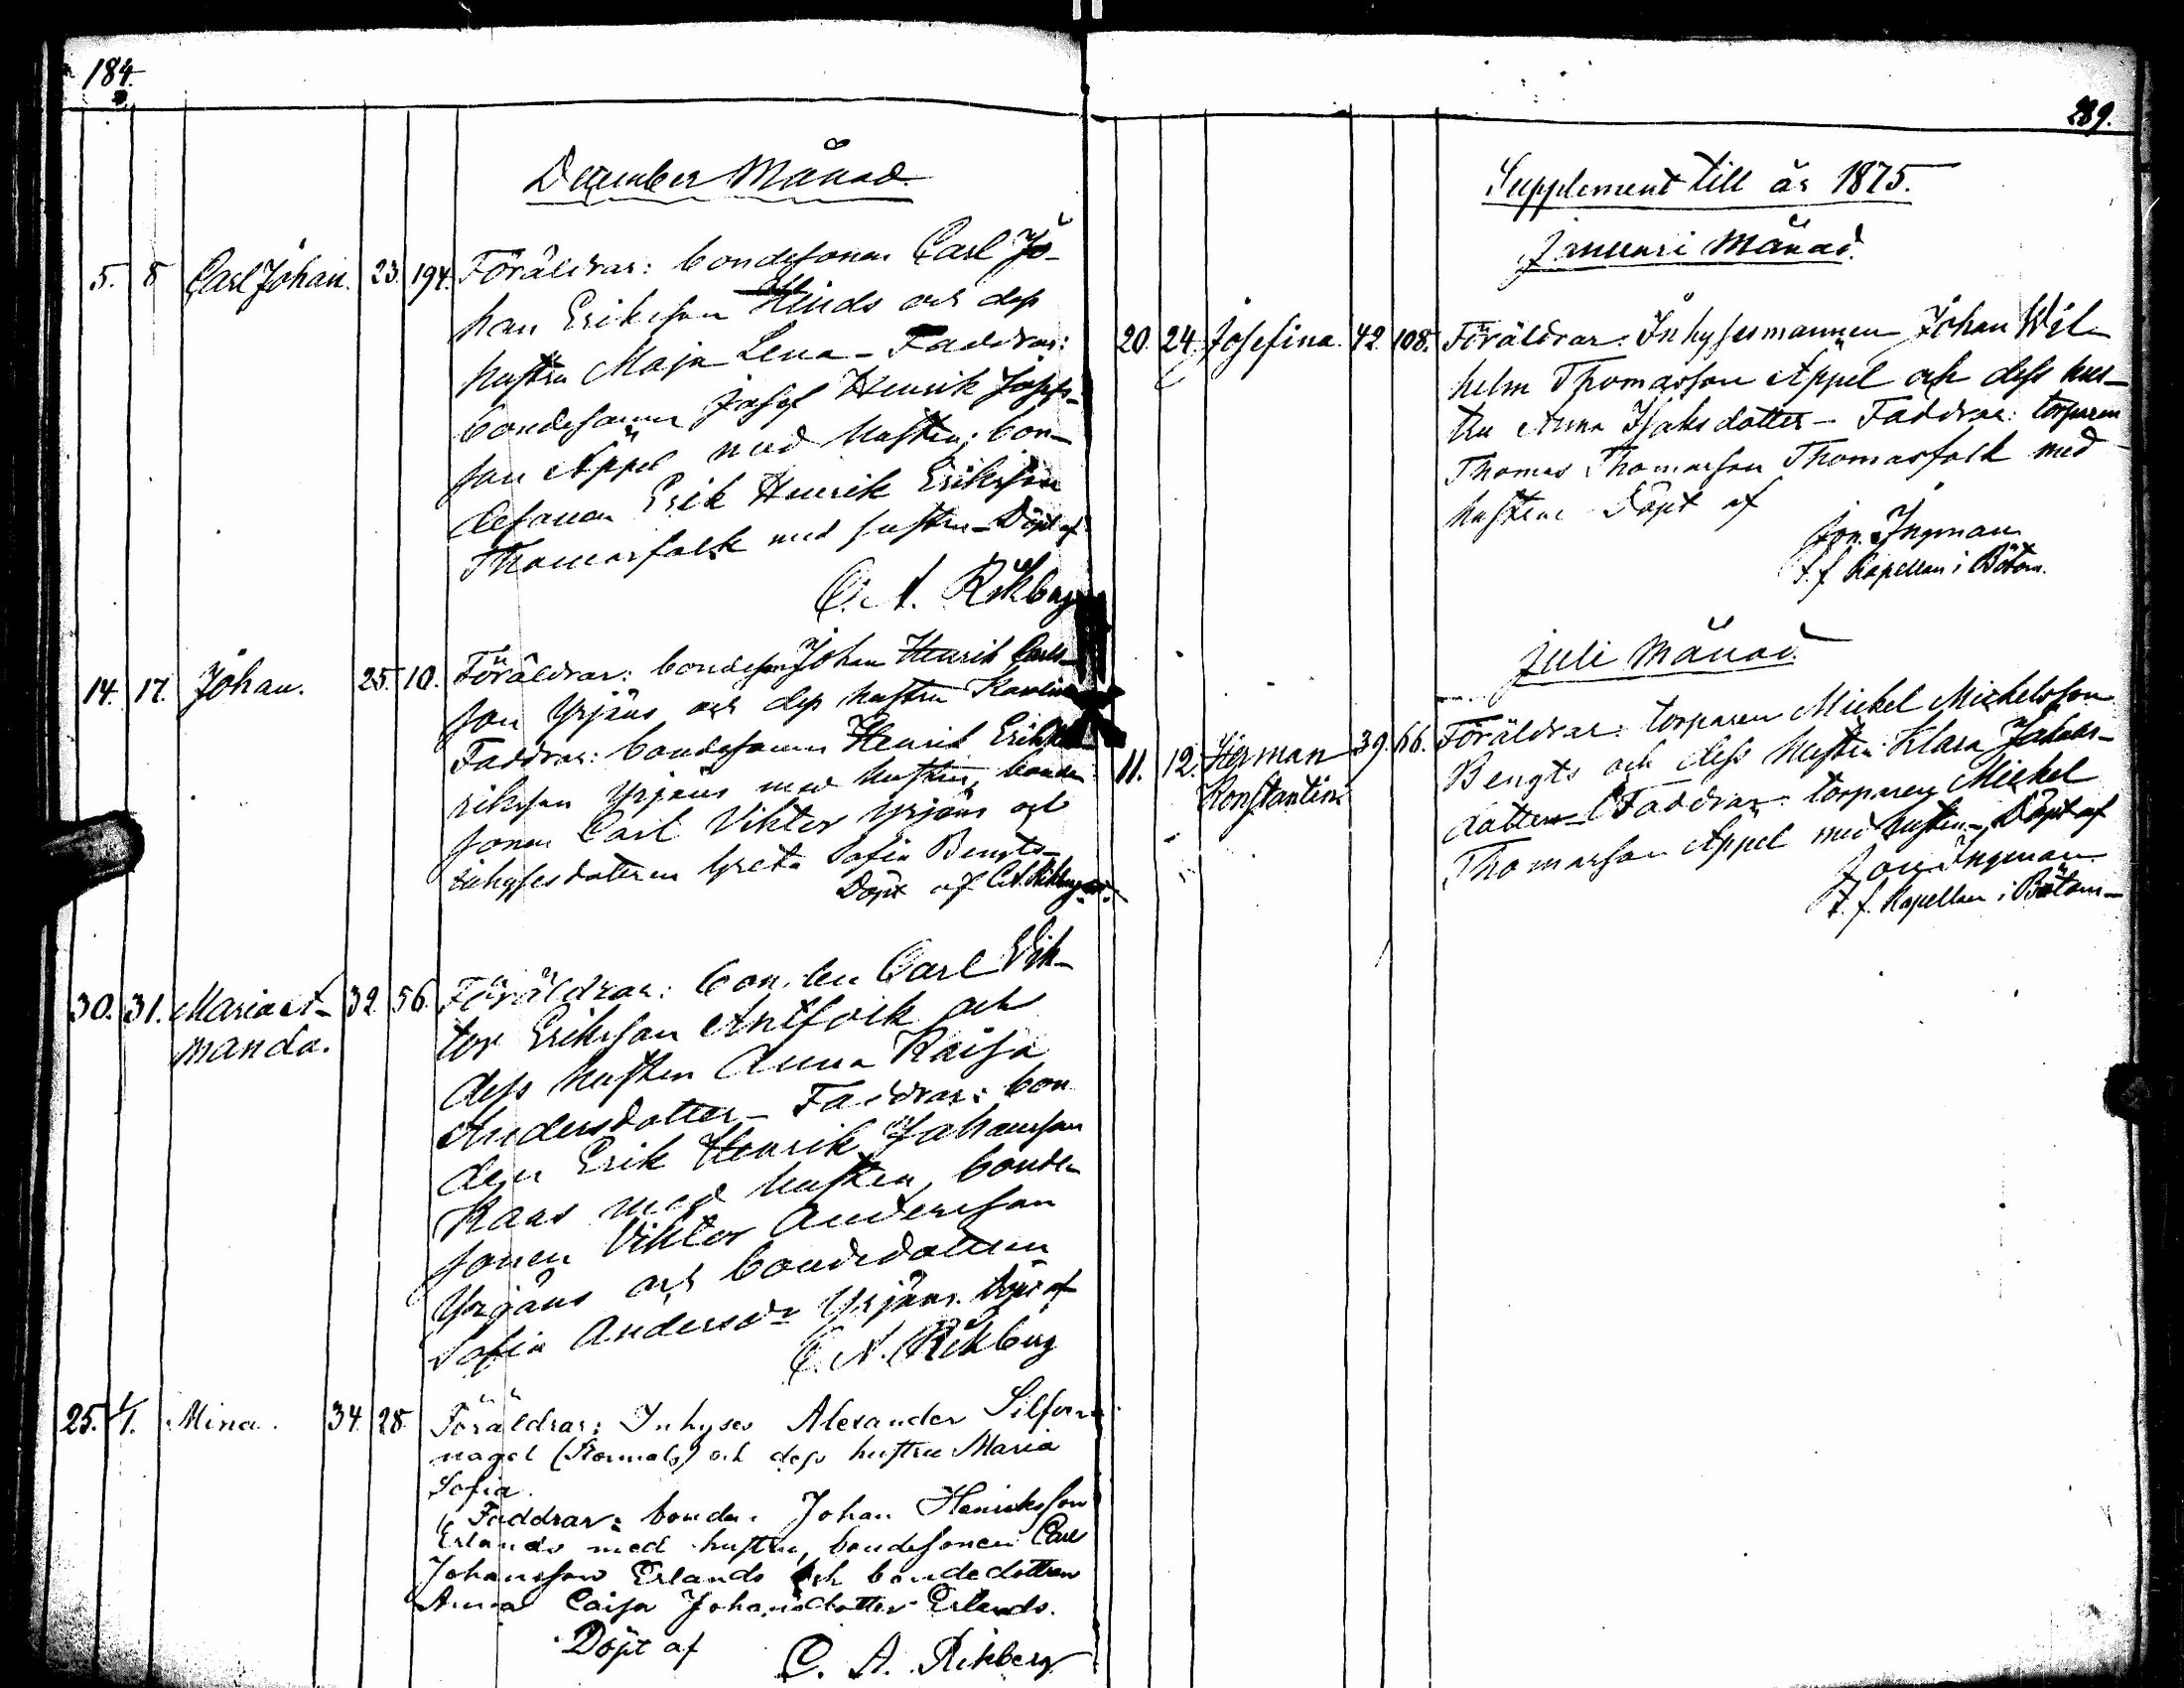 184.
December Månad.
5. 8 Carl Johan. 23. 194. Föräldrar: bondesonen Carl Jo-
han Eriksson Hinds och dess
hustru Maja Lena - Faddrar:
bondesonen Josef Henrik Josefs-
son Äppel med hustru; bon-
desonen Erik Henrik Eriksson
Thomasfolk med hustru - Döpt af
C. A. Rikberg
14. 17. Johan. 25. 10. Föräldrar: bondeson Johan Henrik Carls-
son Yrjäns och dess hustru Karolina
Faddrar: bondesonen Henrik
riksson Yrjäns med hustru, bonde
sonen Carl Viktor Yrjäns och
inhysesdottren Greta Sofia Bengts-
Döpt af C. A. Rikberg
30. 31. Maria A- 32. 56. Föräldrar: bonden Carl Vik-
manda.
tor Eriksson Antfolk och
dess hustru Anna Kaisa
Andersdotter - Faddrar: bon
den Erik Henrik Johansson
Kaas med hustru, bonde-
sonen Viktor Andersson
Yrjäns och bondedottren
Sofia Andersdr Yrjäns. Döpt af
C. A. Rikberg
25. 1/1. Mina. 34 28 Föräldrar: Inhyses Alexander Silfver-
nagel och dess hustru Maria
Sofia.
Faddrar: bonden Johan Henriksson
Erlands med hustru, bondesonen Carl
Johansson Erlands och bondedottren
Anna Caisa Johansdotter Erlands.
Döpt af C. A. Rikberg
289.
Supplement till år 1875.
Januari Månad.
20. 24. Josefina. 42. 108. Föräldrar: Inhysesmannen Johan Wil-
helm Thomasson Äppel och dess hus-
tru Anna Isaksdotter - Faddrar: torparen
Thomas Thomasson Thomasfolk med
hustru Döpt af
Jon. Ingman
t. f. Kapellan i Bötom.
Juli Månad.
11. 12. Herman 39. 66. Föräldrar: torparen Mickel Mickelsson
Konstantin
Bengts och dess hustru Klara Jakobs-
dotter - Faddrar: torparen Mickel
Thomasson Äppel med hustru - Döpt af
Jon. Ingman
t. f. Kapellan i Bötom -